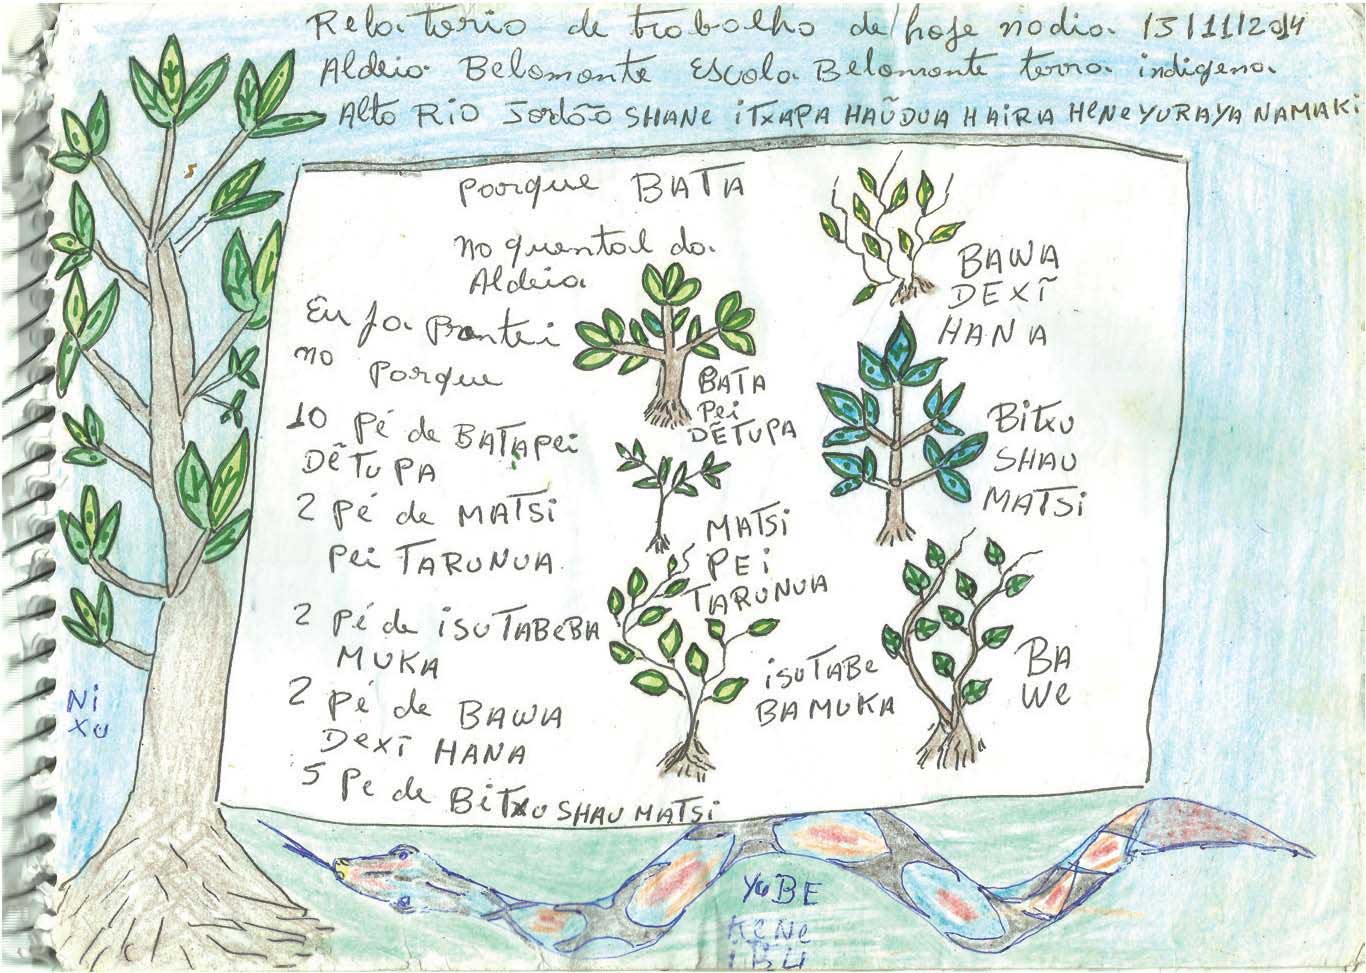 Relatorio de trabalho de hoje no dia 13/11/2014
Aldeia Belomonte Escola Belomonte terra indigena
Alto RiO Jordão SHANE iTXAPA HAŨDUA HAiRA HENE YURAYA NAMAKi
Porque BATA
no quental da
Aldeia
Eu ja Prantei
no Porque
10 Pé de BATAPEi
DẼTUPA
2 Pé de MATSi
PEi TARUNUA
2 Pé de iSUTABEBA
MUKA
2 Pé de BAWA
DEXĨ HANA
5 Pe de BiTXU SHAU MATSi
BATA
PEi
DẼTUPA
MATSi
PEi
TARUNUA
iSUTABE
BAMUKA
BAWA
DEXĨ
HANA
BiTXU
SHAU
MATSi
BA
WE
Ni
XU
YUBE
KENE